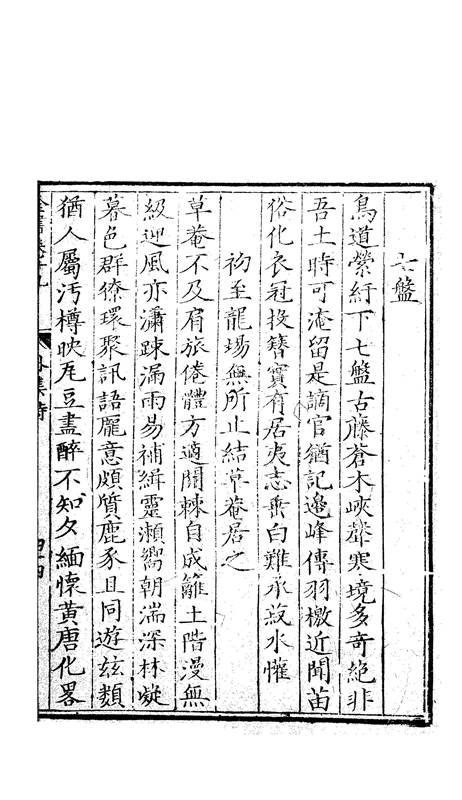 七盤
鳥道縈紆下七盤古藤蒼木峽聲寒境多奇絶非
吾土時可淹留是謫官猶記邊峰傳羽檄近聞苗
俗化衣冠投簪實有居夷志垂白難承菽水懽
初至龍塲無所止結草菴居之
草菴不及肩旅倦體方適開棘自成籬土階漫無
級迎風亦瀟踈漏雨易補緝靈瀨嚮朝湍深林凝
暮色群獠環聚訊語龎意頗質鹿豕且同遊玆類
猶人屬汚樽映瓦豆盡醉不知夕緬懷黄唐化畧
全書卷十九 外集詩 四十四